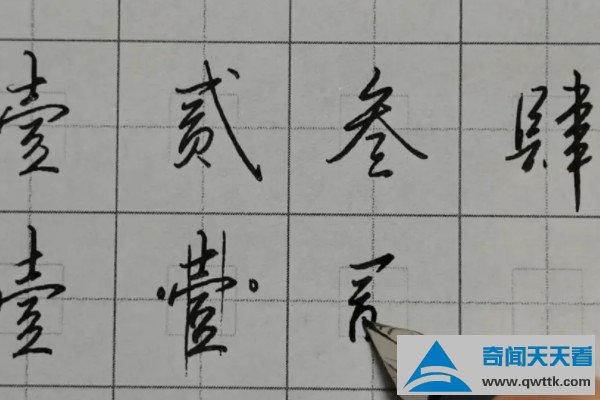 壹 贰 叁 肆
壹 壹
奇闻天天看
www.qwttk.com